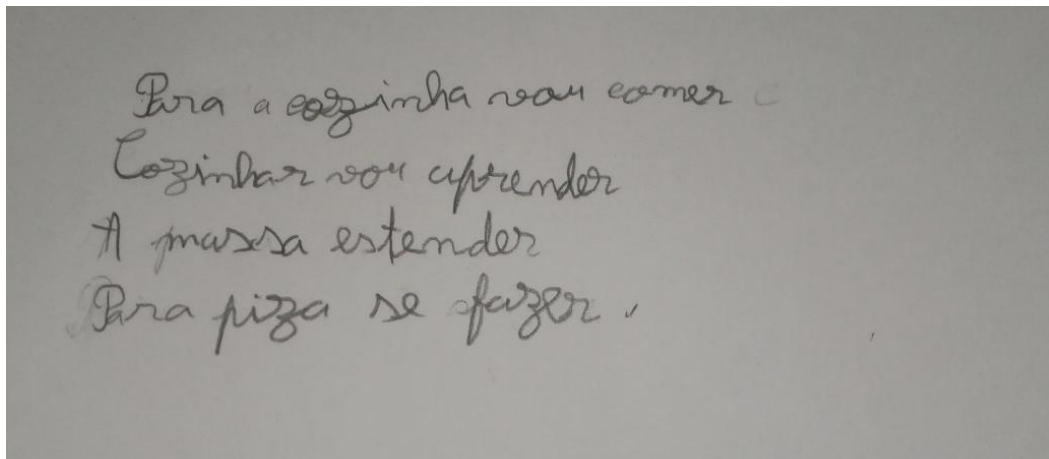 Para a cozinha vou comer
Cozinhar vou aprender
A massa estender
Para piza se fazer.